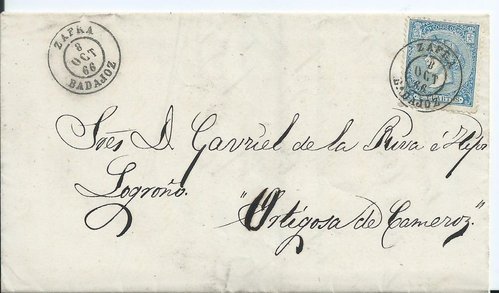 ZAFRA
8
OCT
66
BADAJOZ
ZAFRA
8
OCT
66
BADAJOZ
Sres D. Gavriel de la Riva é Hijo
Logroño.
"Ortigosa de Cameroz."